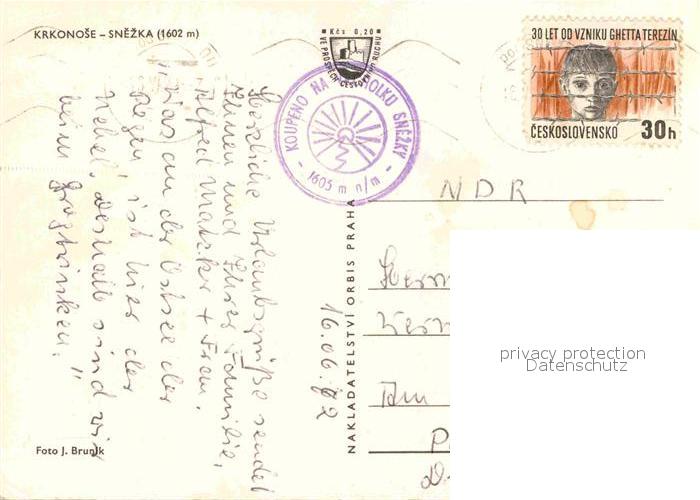 KRKONOŠE – SNĚŽKA (1602 m)
Kčs 0,20
VE PROSPĚCH CESTOVNÍHO RUCHU
KOUPENO NA VRCHOLKU SNĚŽKY
1605 m n/m
30 LET OD VZNIKU GHETTA TEREZÍN
ČESKOSLOVENSKO 30h
Herzliche Urlaubsgrüße sendet
Ihnen und Ihrer Familie,
Alfred + Frau.
"Was an der Ostsee der
Regen, ist hier der
Nebel, deshalb sind wir
beim Grogtrinken."
16.06.72
NAKLADATELSTVÍ ORBIS PRAHA
NDR
Herrn
Am
privacy protection
Datenschutz
Foto J. Bruník